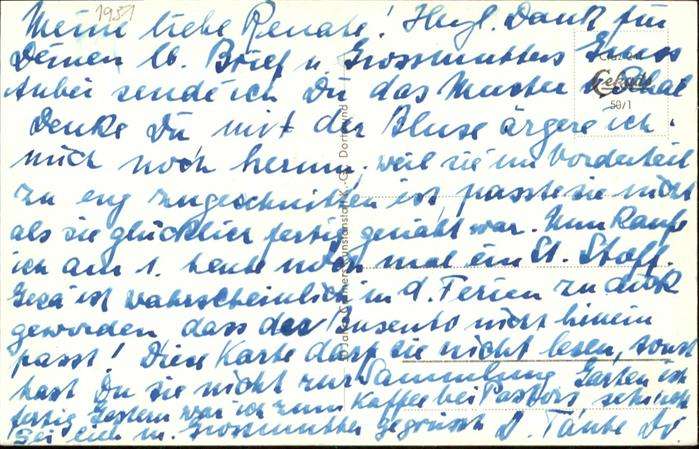 1951
Meine liebe Renate! Herzl. Dank für
Deinen lb. Brief u. Grossmutters Gruss
Anbei sende ich Dir das Muster
Denke Dir mit der Bluse ärgere ich
mich noch herum, weil sie im Vorderteil
zu eng zugeschnitten ist, passte sie nicht
als sie glücklich fertig genäht war. Nun kaufe
ich am 1. heute noch mal ein St. Stoff.
Gesa ist wahrscheinlich in d. Ferien zu dick
geworden dass der nicht hinein
passt! Diese Karte darf sie nicht lesen, sonst
hast Du sie nicht zur Sammlung
fertig Gestern war ich zum Kaffee bei Pastors
Sei lieb m. Grossmutter gegrüsst D. Tante
Gekado
50/1
Dortmund